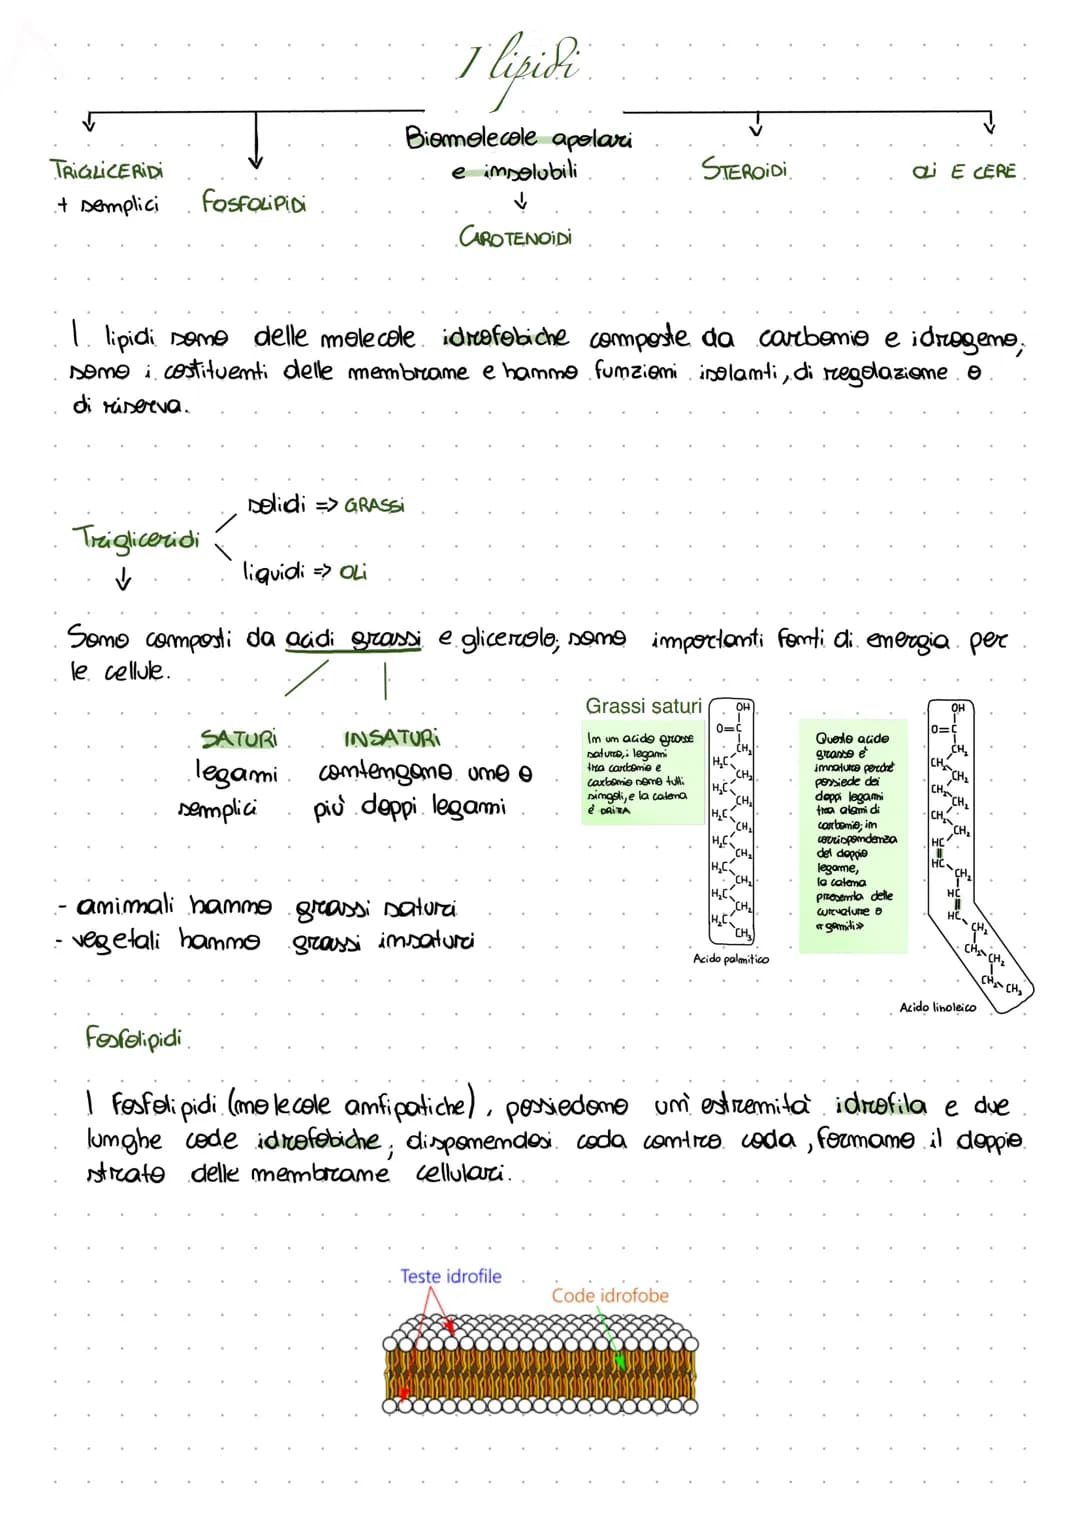 I lipidi
Biomolecole apolari
e insolubili
TRIGLICERIDI
+ semplici
FOSFOLIPIDI
CAROTENOIDI
STEROIDI
OLI E CERE
I lipidi sono delle molecole idrofobiche composte da carbonio e idrogeno,
sono i costituenti delle membrane e hanno funzioni isolanti, di regolazione e
di riserva.
Trigliceridi
solidi => GRASSI
liquidi => OLI
Sono composti da acidi grassi e glicerolo; sono importanti fonti di energia per
le cellule.
SATURI
legami
semplici
INSATURI
contengono uno o
più doppi legami
- animali hanno grassi saturi
- vegetali hanno grassi insaturi
Grassi saturi
In un acido grasso
saturo, i legami
tra carbonio e
carbonio sono tutti
singoli, e la catena
è DRITTA
OH
O=C
CH₂
H₂C
CH₂
H₂C
CH₂
H₂C
CH₂
H₂C
CH₂
H₂C
CH₂
H₂C
CH₂
H₂C
CH₃
Acido palmitico
Questo acido
grasso è
insaturo perché
possiede dei
doppi legami
tra atomi di
carbonio; in
corrispondenza
del doppio
legame,
la catena
presenta delle
curvature o
«gomiti»
OH
O=C
CH₂
CH₂
CH₂
CH₂
CH₂
CH₂
CH₂
HC
HC
CH₂
HC
HC
CH₂
CH₂
CH₂
CH₂
CH₃
Acido linoleico
Fosfolipidi
I fosfolipidi (molecole anfipatiche), possiedono un'estremità idrofila e due
lunghe code idrofobiche; disponendosi coda contro coda, formano il doppio
strato delle membrane cellulari.
Teste idrofile
Code idrofobe